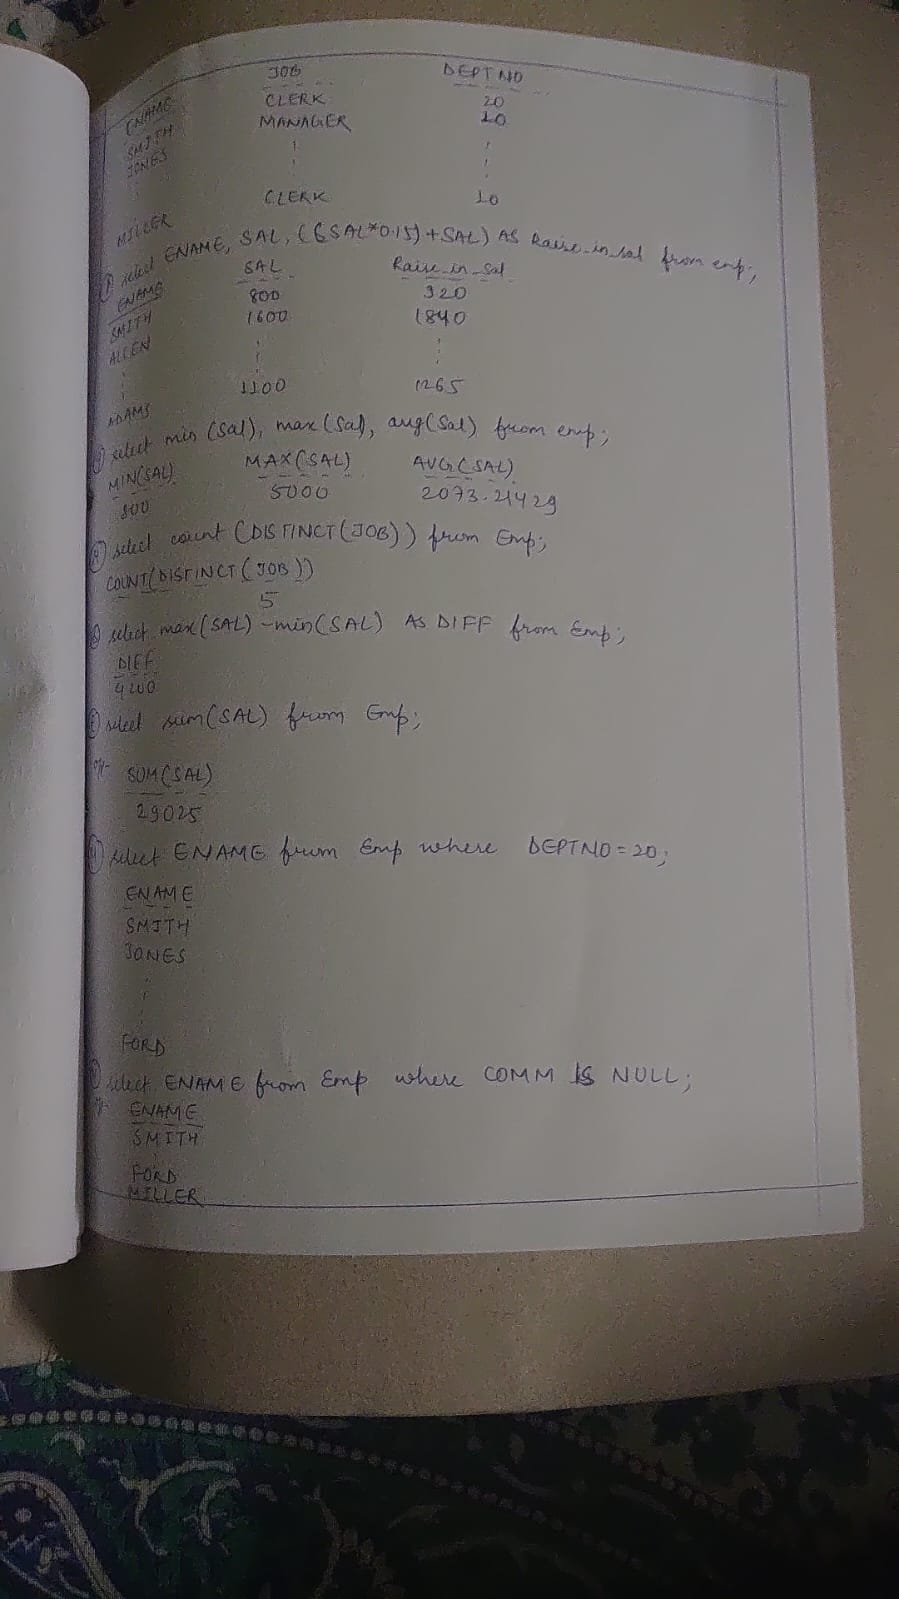 ENAME JOB DEPTNO
SMITH CLERK 20
JONES MANAGER 20
MILLER CLERK 10
select ENAME, SAL, ((SAL*0.15)+SAL) AS Raise_in_sal from emp;
ENAME SAL Raise_in_sal
SMITH 800 920
ALLEN 1600 1840
ADAMS 1100 1265
select min (sal), max (sal), avg(sal) from emp;
MIN(SAL) MAX(SAL) AVG(SAL)
800 5000 2073.21429
select count (DISTINCT(JOB)) from Emp;
COUNT(DISTINCT(JOB))
5
select max(SAL)-min(SAL) AS DIFF from Emp;
DIFF
4200
select sum(SAL) from Emp;
SUM(SAL)
29025
select ENAME from Emp where DEPTNO=20;
ENAME
SMITH
JONES
FORD
select ENAME from Emp where COMM IS NULL;
ENAME
SMITH
FORD
MILLER